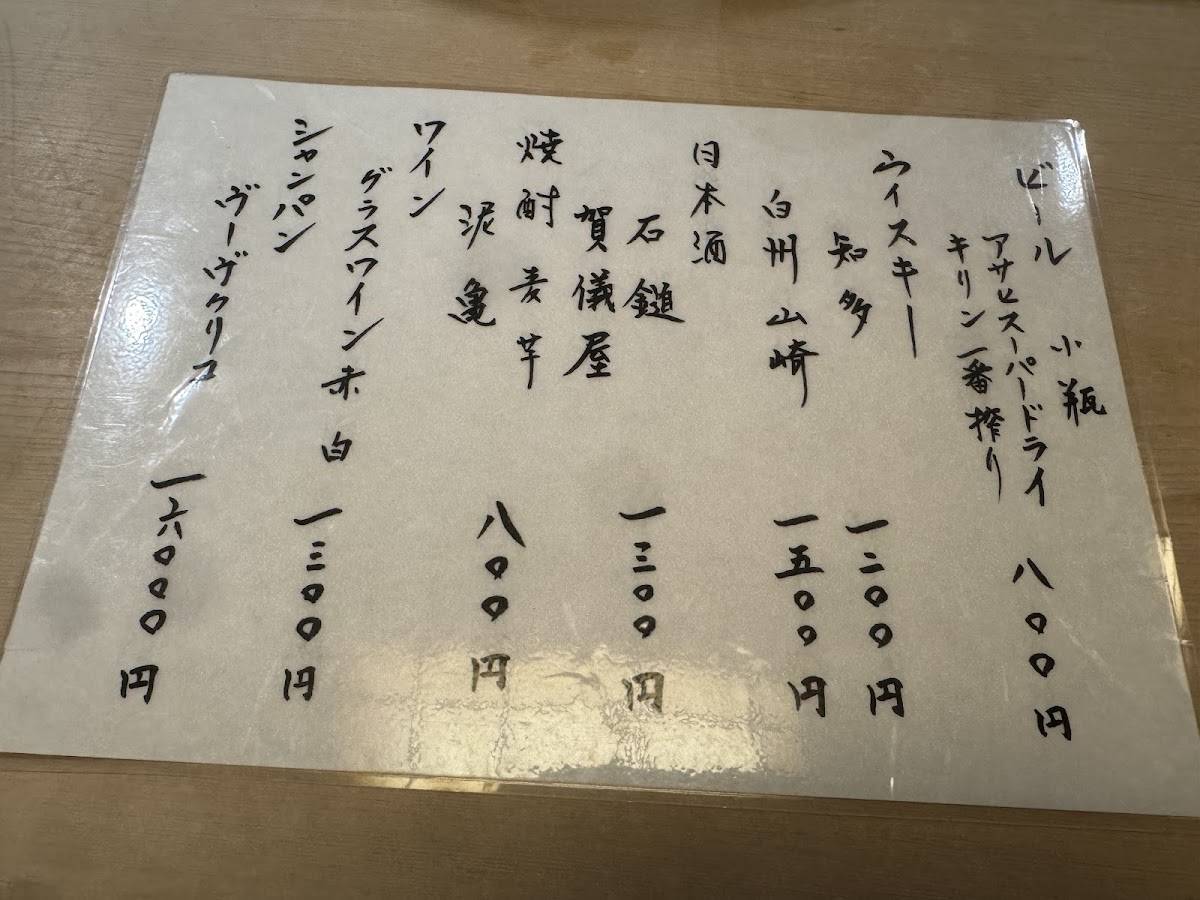 ビール 小瓶
アサヒスーパードライ 八〇〇円
キリン一番搾り
ウィスキー
知多 一二〇〇円
白州 山崎 一五〇〇円
日本酒
石鎚 一三〇〇円
賀儀屋
焼酎 麦 芋 八〇〇円
泥亀
ワイン
グラスワイン 赤 白 一三〇〇円
シャンパン
ヴーヴクリコ 一六〇〇〇円